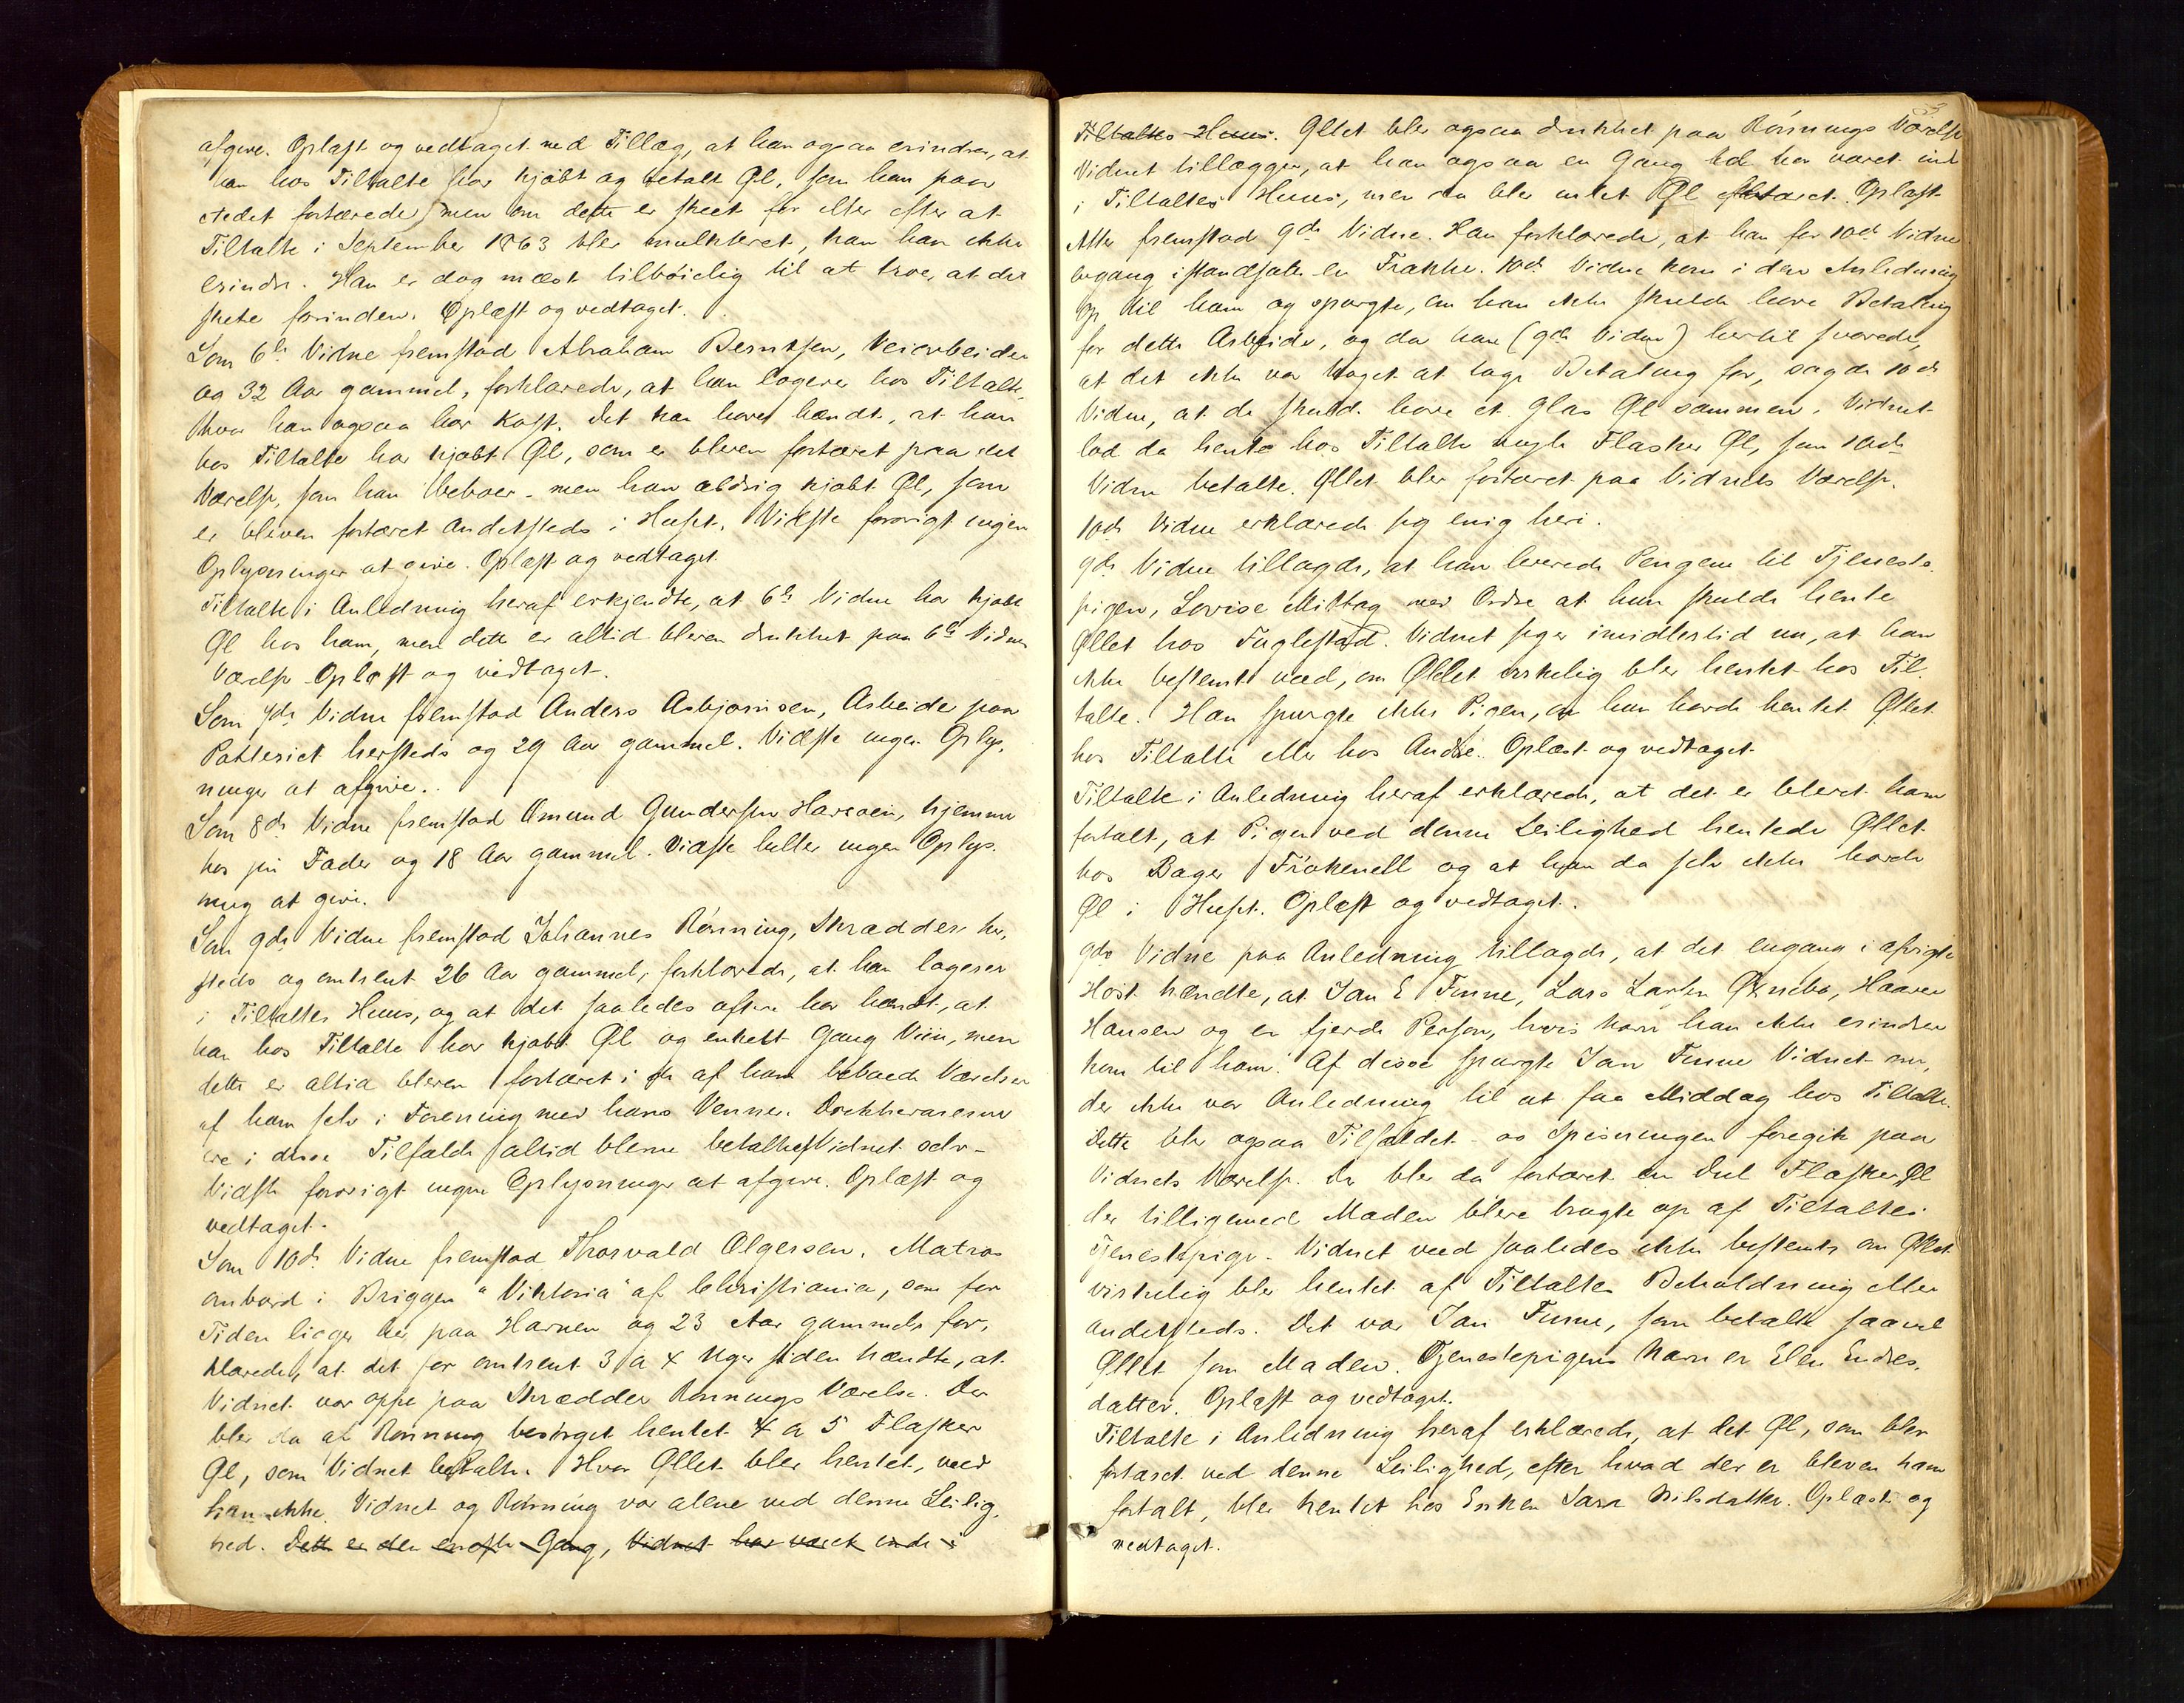 afgive. Oplæst og vedtaget med Tillæg, at han ogsaa erindrer, at
han hos Tiltalte har kjøbt og betalt Øl, som han paa
stedet fortærede, men om dette er skeet før eller efter at
Tiltalte i September 1863 blev mulkteret, kan han ikke
erindre. Han er dog mæst tilbøielig til at troe, at det
skete forinden. Oplæst og vedtaget.
Som 6te Vidne fremstod Abraham Berntsen, Veiarbeider
og 32 Aar gammel, forklarede, at han logerer hos Tiltalte,
hvor han ogsaa har Kost. Det kan have hændt, at han
hos Tiltalte har kjøbt Øl, som er bleven fortæret paa det
Værelse, som han beboer, men han aldrig kjøbt Øl, som
er bleven fortæret andetsteds i Huset. Vidste forøvrigt ingen
Oplysninger at give. Oplæst og vedtaget.
Tiltalte i Anledning heraf erkjendte, at 6te Vidne har kjøbt
Øl hos ham, men dette er altid bleven drukket paa 6te Vidnes
Værelse. Oplæst og vedtaget.
Som 7de Vidne fremstod Anders Asbjørnsen, Arbeider paa
Potteriet hersteds og 29 Aar gammel. Vidste ingen Oplys-
ninger at afgive.
Som 8de Vidne fremstod Omund Gundersen, hjemme
hos sin Fader og 18 Aar gammel. Vidste heller ingen Oplys-
ning at give.
Som 9de Vidne fremstod Johannes Rønning, Skrædder her-
steds og omtrent 26 Aar gammel, forklarede, at han logerer
i Tiltaltes Huus, og at det saaledes oftere har hændt, at
han hos Tiltalte har kjøbt Øl og enkelt Gang Viin, men
dette er altid bleven fortæret i de af ham beboede Værelser
af ham selv i Forening med hans Venner. Drikkevarerne
ere i disse Tilfælde altid blevne betalte af Vidnet selv.
Vidste forøvrigt ingen Oplysninger at afgive. Oplæst og
vedtaget.
Som 10de Vidne fremstod Thorvald Olgersen, Matros
ombord i Briggen "Viktoria" af Christiania, som for
Tiden ligger her paa Havnen og 23 Aar gammel, for-
klarede, at det for omtrent 3 a 4 Uger siden hændte, at
Vidnet var oppe paa Skrædder Rønnings Værelse. Der
blev da af Rønning besørget hentet 4 a 5 Flasker
Øl, som Vidnet betalte. Hvor Øllet blev hentet, veed
han ikke. Vidnet og Rønning var alene ved denne Leilig-
hed. Dette er den eneste Gang, Vidnet har været inde i
Tiltaltes Huus. Øllet blev ogsaa drukket paa Rønnings Værelse
Vidnet tillægger, at han ogsaa en Gang har været inde
i Tiltaltes Huus, men da blev intet Øl fortæret. Oplæst
Atter fremstod 9de Vidne. Han forklarede, at han for 10de Vidne
engang istandsatte en Frakke. 10de Vidne kom i den Anledning
op til ham og spurgte, om han ikke skulde have Betaling
for dette Arbeide, og da han (9de Vidne) hertil svarede,
at det ikke var Noget at tage Betaling for, sagde 10de
Vidne, at de skulde have et Glas Øl sammen. Vidnet
lod da hente hos Tiltalte nogle Flasker Øl, som 10de
Vidne betalte. Øllet blev fortæret paa Vidnets Værelse.
10de Vidne erklærede sig enig heri.
9de Vidne tillagde, at han leverede Pengene til Tjeneste-
pigen, Lovise Mittag med Ordre at hun skulde hente
Øllet hos Fuglestad. Vidnet siger imidlertid nu, at han
ikke bestemt veed, om Øllet virkelig blev hentet hos Til-
talte. Han spurgte ikke Pigen, om hun havde hentet Øllet
hos Tiltalte eller hos Andre. Oplæst og vedtaget.
Tiltalte i Anledning heraf erklærede, at det er blevet ham
fortalt, at Pigen ved denne Leilighed hentede Øllet
hos Bager Frøkenell og at han da selv ikke havde
Øl i Huset. Oplæst og vedtaget.
9de Vidne paa Anledning tillagde, at det engang i afvigte
Høst hændte, at Jan E Finne, Lars Larsen
Hansen og en fjerde Person, hvis Navn han ikke erindrer
kom til ham. Af disse spurgte Jan Finne Vidnet om,
der ikke var Anledning til at faa Middag hos Tiltalte.
Dette blev ogsaa Tilfældet og Spisningen foregik paa
Vidnets Værelse. Der blev da fortæret en Deel Flasker Øl
der tilligemed Maden bleve bragte op af Tiltaltes
Tjenestepige. Vidnet veed saaledes ikke bestemt om Øllet
virkelig blev hentet af Tiltaltes Beholdning eller
andetsteds. Det var Jan Finne, som betalte saavel
Øllet som Maden. Tjenestepigens Navn er Elen Endres-
datter. Oplæst og vedtaget.
Tiltalte i Anledning heraf erklærede, at det Øl, som blev
fortæret ved denne Leilighed, efter hvad der er bleven ham
fortalt, blev hentet hos Enken Sara Nilsdatter. Oplæst og
vedtaget.